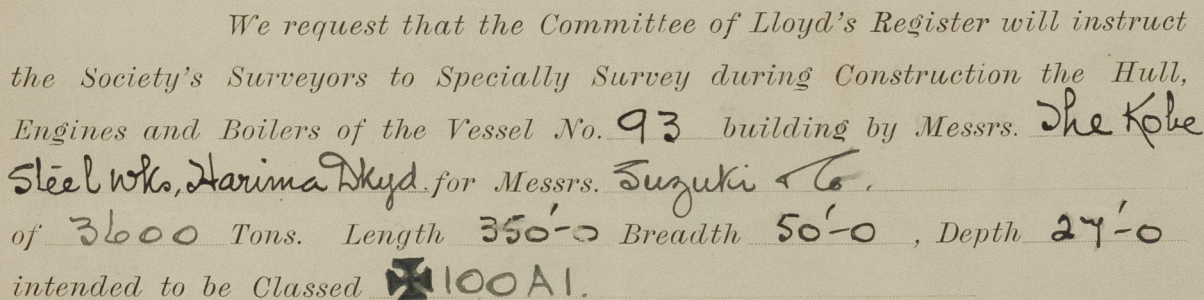 We request that the Committee of Lloyd's Register will instruct
the Society's Surveyors to Specially Survey during Construction the Hull,
Engines and Boilers of the Vessel No. 93 building by Messrs. The Kobe
Steel Wks, Harima Dkyd. for Messrs. Suzuki & Co.
of 3600 Tons. Length 350'-0 Breadth 50'-0, Depth 27'-0
intended to be Classed ✠100A1.